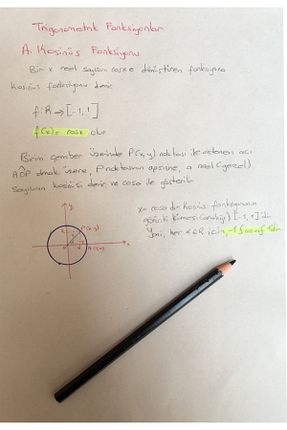 Trigonometrik Fonksiyonlar
A. Kosinüs Fonksiyonu
Bir x reel sayısını cosx e dönüştüren fonksiyona
kosinüs fonksiyonu denir.
f: R → [-1, 1]
f(x) = cosx olur
Birim çember üzerinde P(x,y) noktası ile eşlenen açı
AOP olmak üzere, P noktasının apsisine, a reel (gerçel)
Sayısının kosinüsü denir ve cosa ile gösterilir
y
P(x,y)
x
x = cosa dır. kosinüs fonksiyonunun
görüntü kümesi (aralığı) [-1, 1] dir
Yani, her a ∈ R için, -1 ≤ cosa ≤ 1 dir